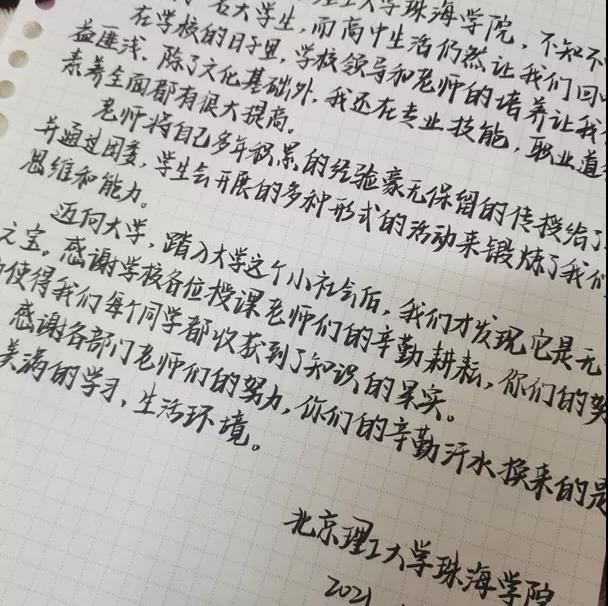 了一名大学生,而高中生活仍然让我们回
理工大学珠海学院,不知不
在学校的日子里,学校领导和老师的培养让我
益匪浅。除了文化基础外,我还在专业技能,职业道
素养全面都有很大提高。
老师将自己多年积累的经验豪无保留的传授给了
并通过团委,学生会开展的多种形式的活动来锻炼了我们
思维和能力。
迈向大学,踏入大学这个小社会后,我们才发现它是无
之宝。感谢学校各位授课老师们的辛勤耕耘,你们的努
使得我们每个同学都收获到了知识的果实。
感谢各部门老师们的努力,你们的辛勤汗水换来的是
美满的学习,生活环境。
北京理工大学珠海学院
2021